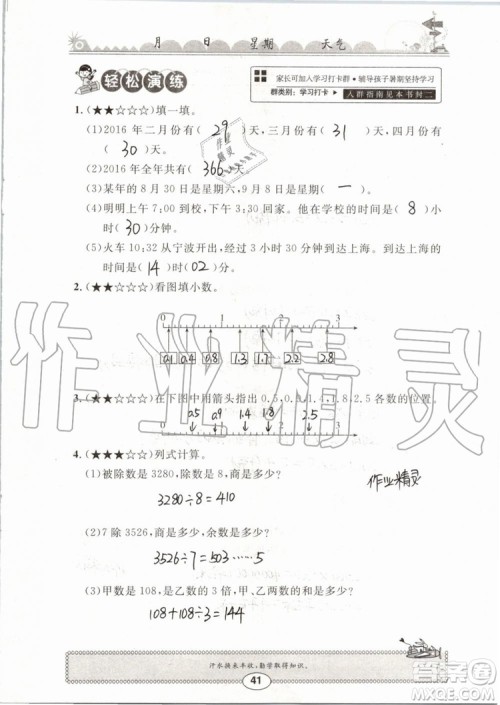 月 日 星期 天气
轻松演练
家长可加入学习打卡群·辅导孩子暑期坚持学习
群类别：学习打卡
入群指南见本书封二
1.(★★☆☆☆)填一填。
(1)2016 年二月份有( 29 )天，三月份有( 31 )天，四月份有
( 30 )天。
(2)2016 年全年共有( 366 )天。
(3)某年的 8 月 30 日是星期六，9 月 8 日是星期( 一 )。
(4)明明上午 7:00 到校，下午 3:30 回家。他在学校的时间是( 8 )小
时( 30 )分钟。
(5)火车 10:32 从宁波开出，经过 3 小时 30 分钟到达上海。到达上海
的时间是( 14 )时( 02 )分。
2.(★★☆☆☆)看图填小数。
0 1 2 3
0.1 0.4 0.8 1.3 1.7 2.2 2.8
3.(★★☆☆☆)在下图中用箭头指出 0.5,0.9,1.4,1.8,2.5 各数的位置。
0.5 0.9 1.4 1.8 2.5
0 1 2 3
4.(★★★☆☆)列式计算。
(1)被除数是 3280，除数是 8，商是多少？
3280÷8=410
作业精灵
(2)7 除 3526，商是多少，余数是多少？
3526÷7=503……5
(3)甲数是 108，是乙数的 3 倍，甲、乙两数的和是多少？
108+108÷3=144
汗水换来丰收，勤学取得知识。
41
作业精灵
作业精灵
答案圈